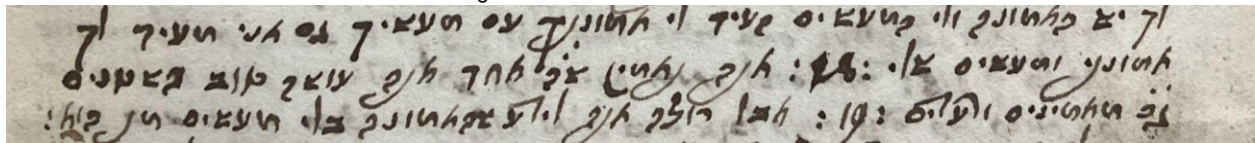 לך יש באמונה ולי במעשים תעיד לי אמונתך עם מעשיך גם אני מעיד לך
אמוני ומעשים שלי :18: אתה מאמין אחד אתה עושה טוב השטנים
גם מאמינים :19: אבל רוצה אתה לידע שהאמונה בלי מעשים הוא: